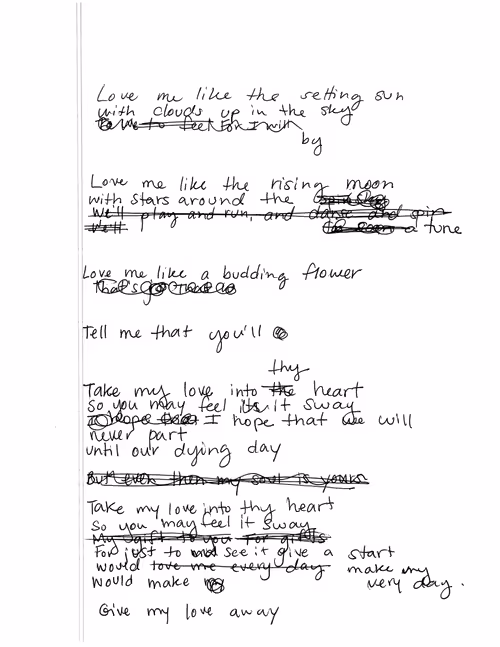 Love me like the setting sun
with clouds up in the sky
to feel for I will
by
Love me like the rising moon
with stars around the
We'll play and run, and danse and spin
We'll a tune
Love me like a budding flower
That's
Tell me that you'll
thy
Take my love into the heart
So you may feel it sway
I hope I hope that we will
never part
until our dying day
But even then my soul is yours
Take my love into thy heart
So you may feel it sway
My gift to you for gifts
For just to see it give a start
would love me every day make my
would make very day.
Give my love away